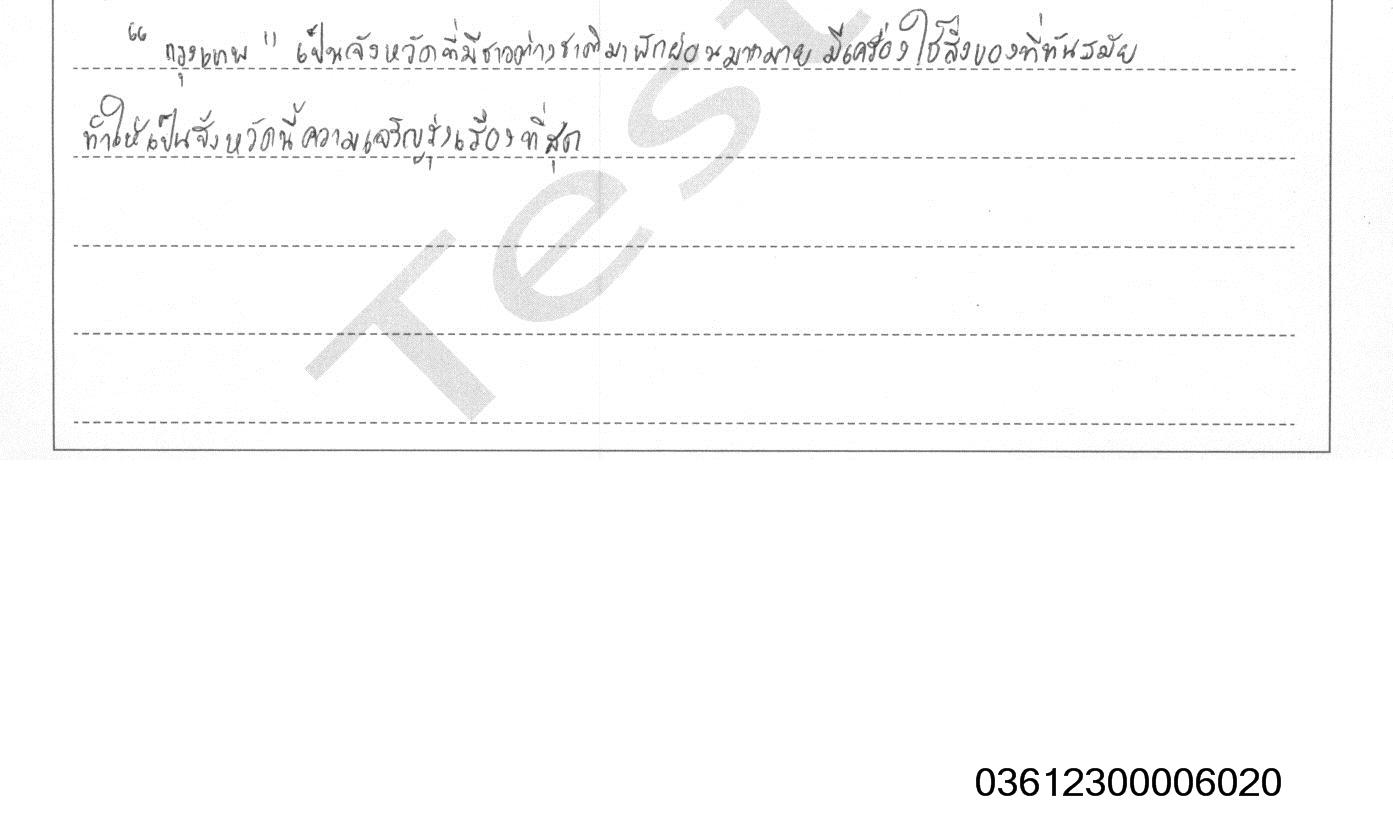 “ กรุงเทพ " เป็นจังหวัดที่มีชาวต่างชาติมาพักผ่อนมากมาย มีเครื่องใช้สิ่งของที่ทันสมัย
ทำให้เป็นจังหวัดนี้ความเจริญรุ่งเรืองที่สุด
Test
03612300006020